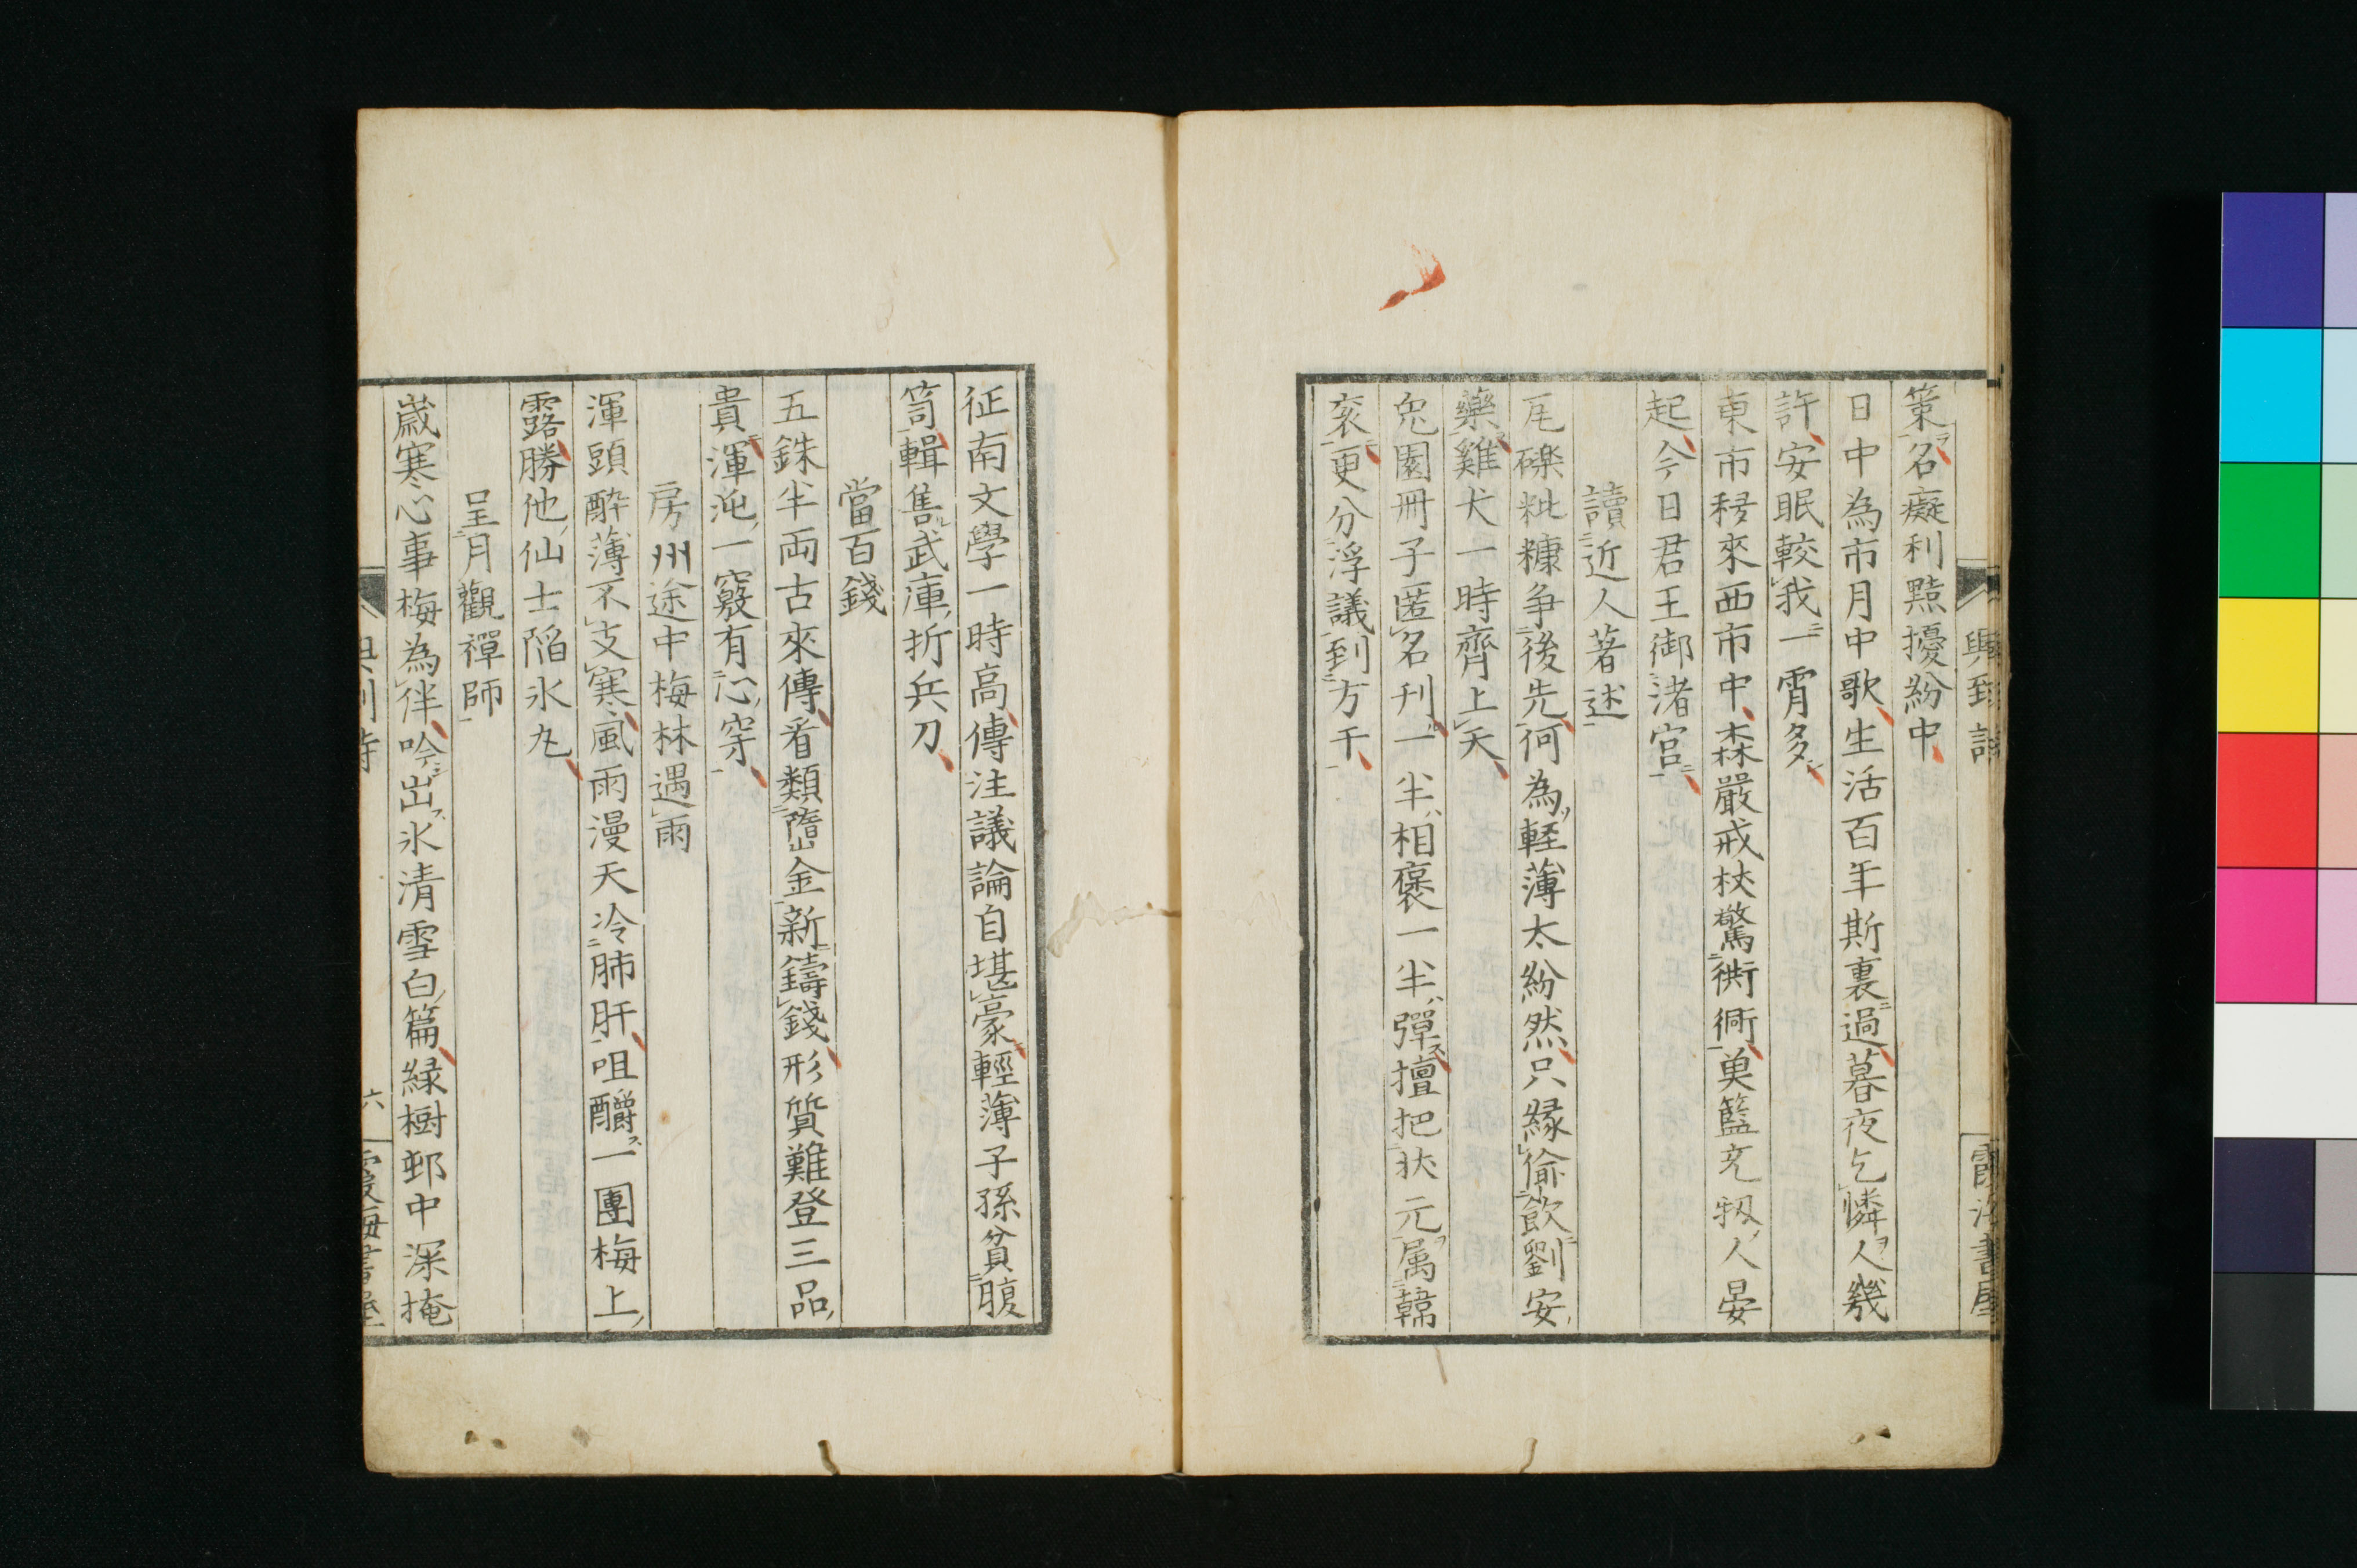 興到詩
霞海書屋
策名癡利黠擾紛中
日中為市月中歌生活百年斯裏過暮夜乞憐人幾
許安眠較我一宵多
東市移來西市中森嚴戒柝驚衖衕菓籃充牣人晏
起今日君王御渚宮
讀近人著述
瓦礫粃糠爭後先何為輕薄太紛然只緣偷飲劉安
藥雞犬一時齊上天
兔園冊子匿名刊一半相褒一半彈擅把狀元属韓
袞更分浮議到方干
征南文學一時高傳注議論自堪豪輕薄子孫貧腹
笥輯雋武庫折兵刀
當百錢
五銖半両古來傳看類隋山金新鑄錢形質難登三品
貴渾沌一竅有心穿
房州途中梅林遇雨
渾頭酔薄不支寒風雨漫天冷肺肝咀釂一團梅上
露勝他仙士陷氷丸
呈月觀禪師
歲寒心事梅為伴吟出氷清雪白篇緑樹邨中深掩
興到詩
六
霞海書屋